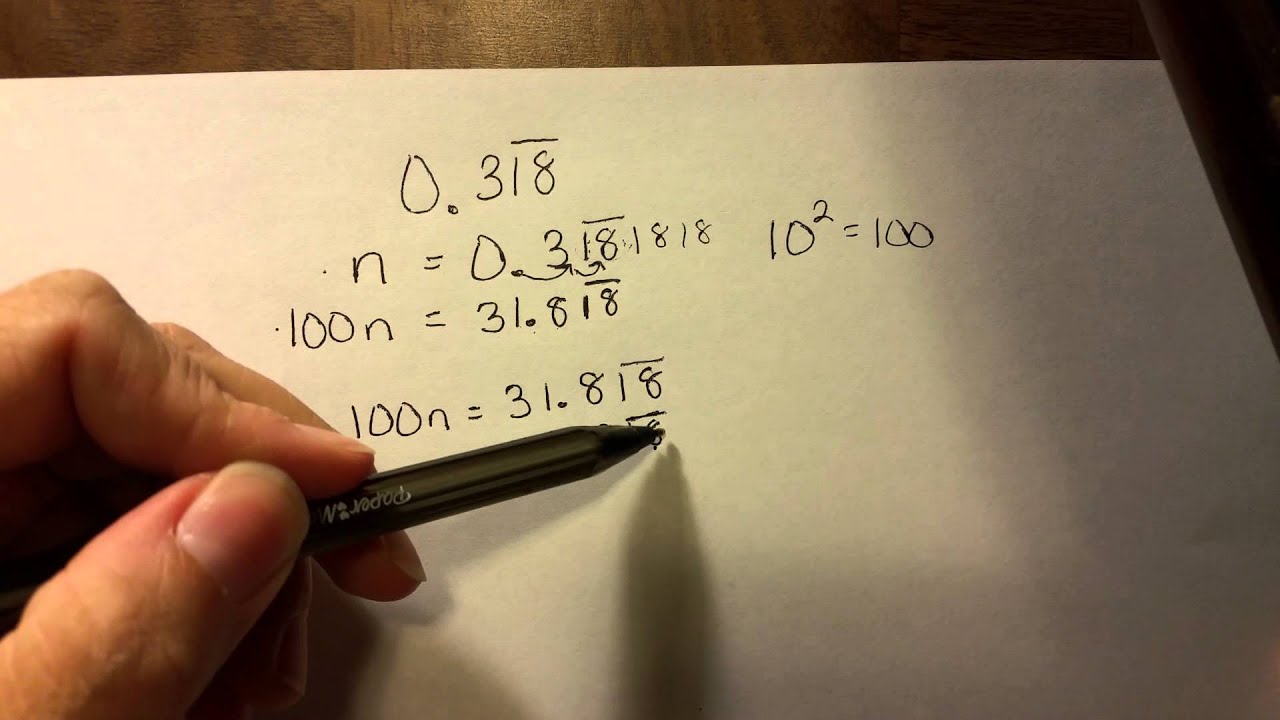 0.31̅8̅
n = 0.31̅8̅1818 10² = 100
100n = 31.81̅8̅
100n = 31.81̅8̅
1̅8̅
Paper M